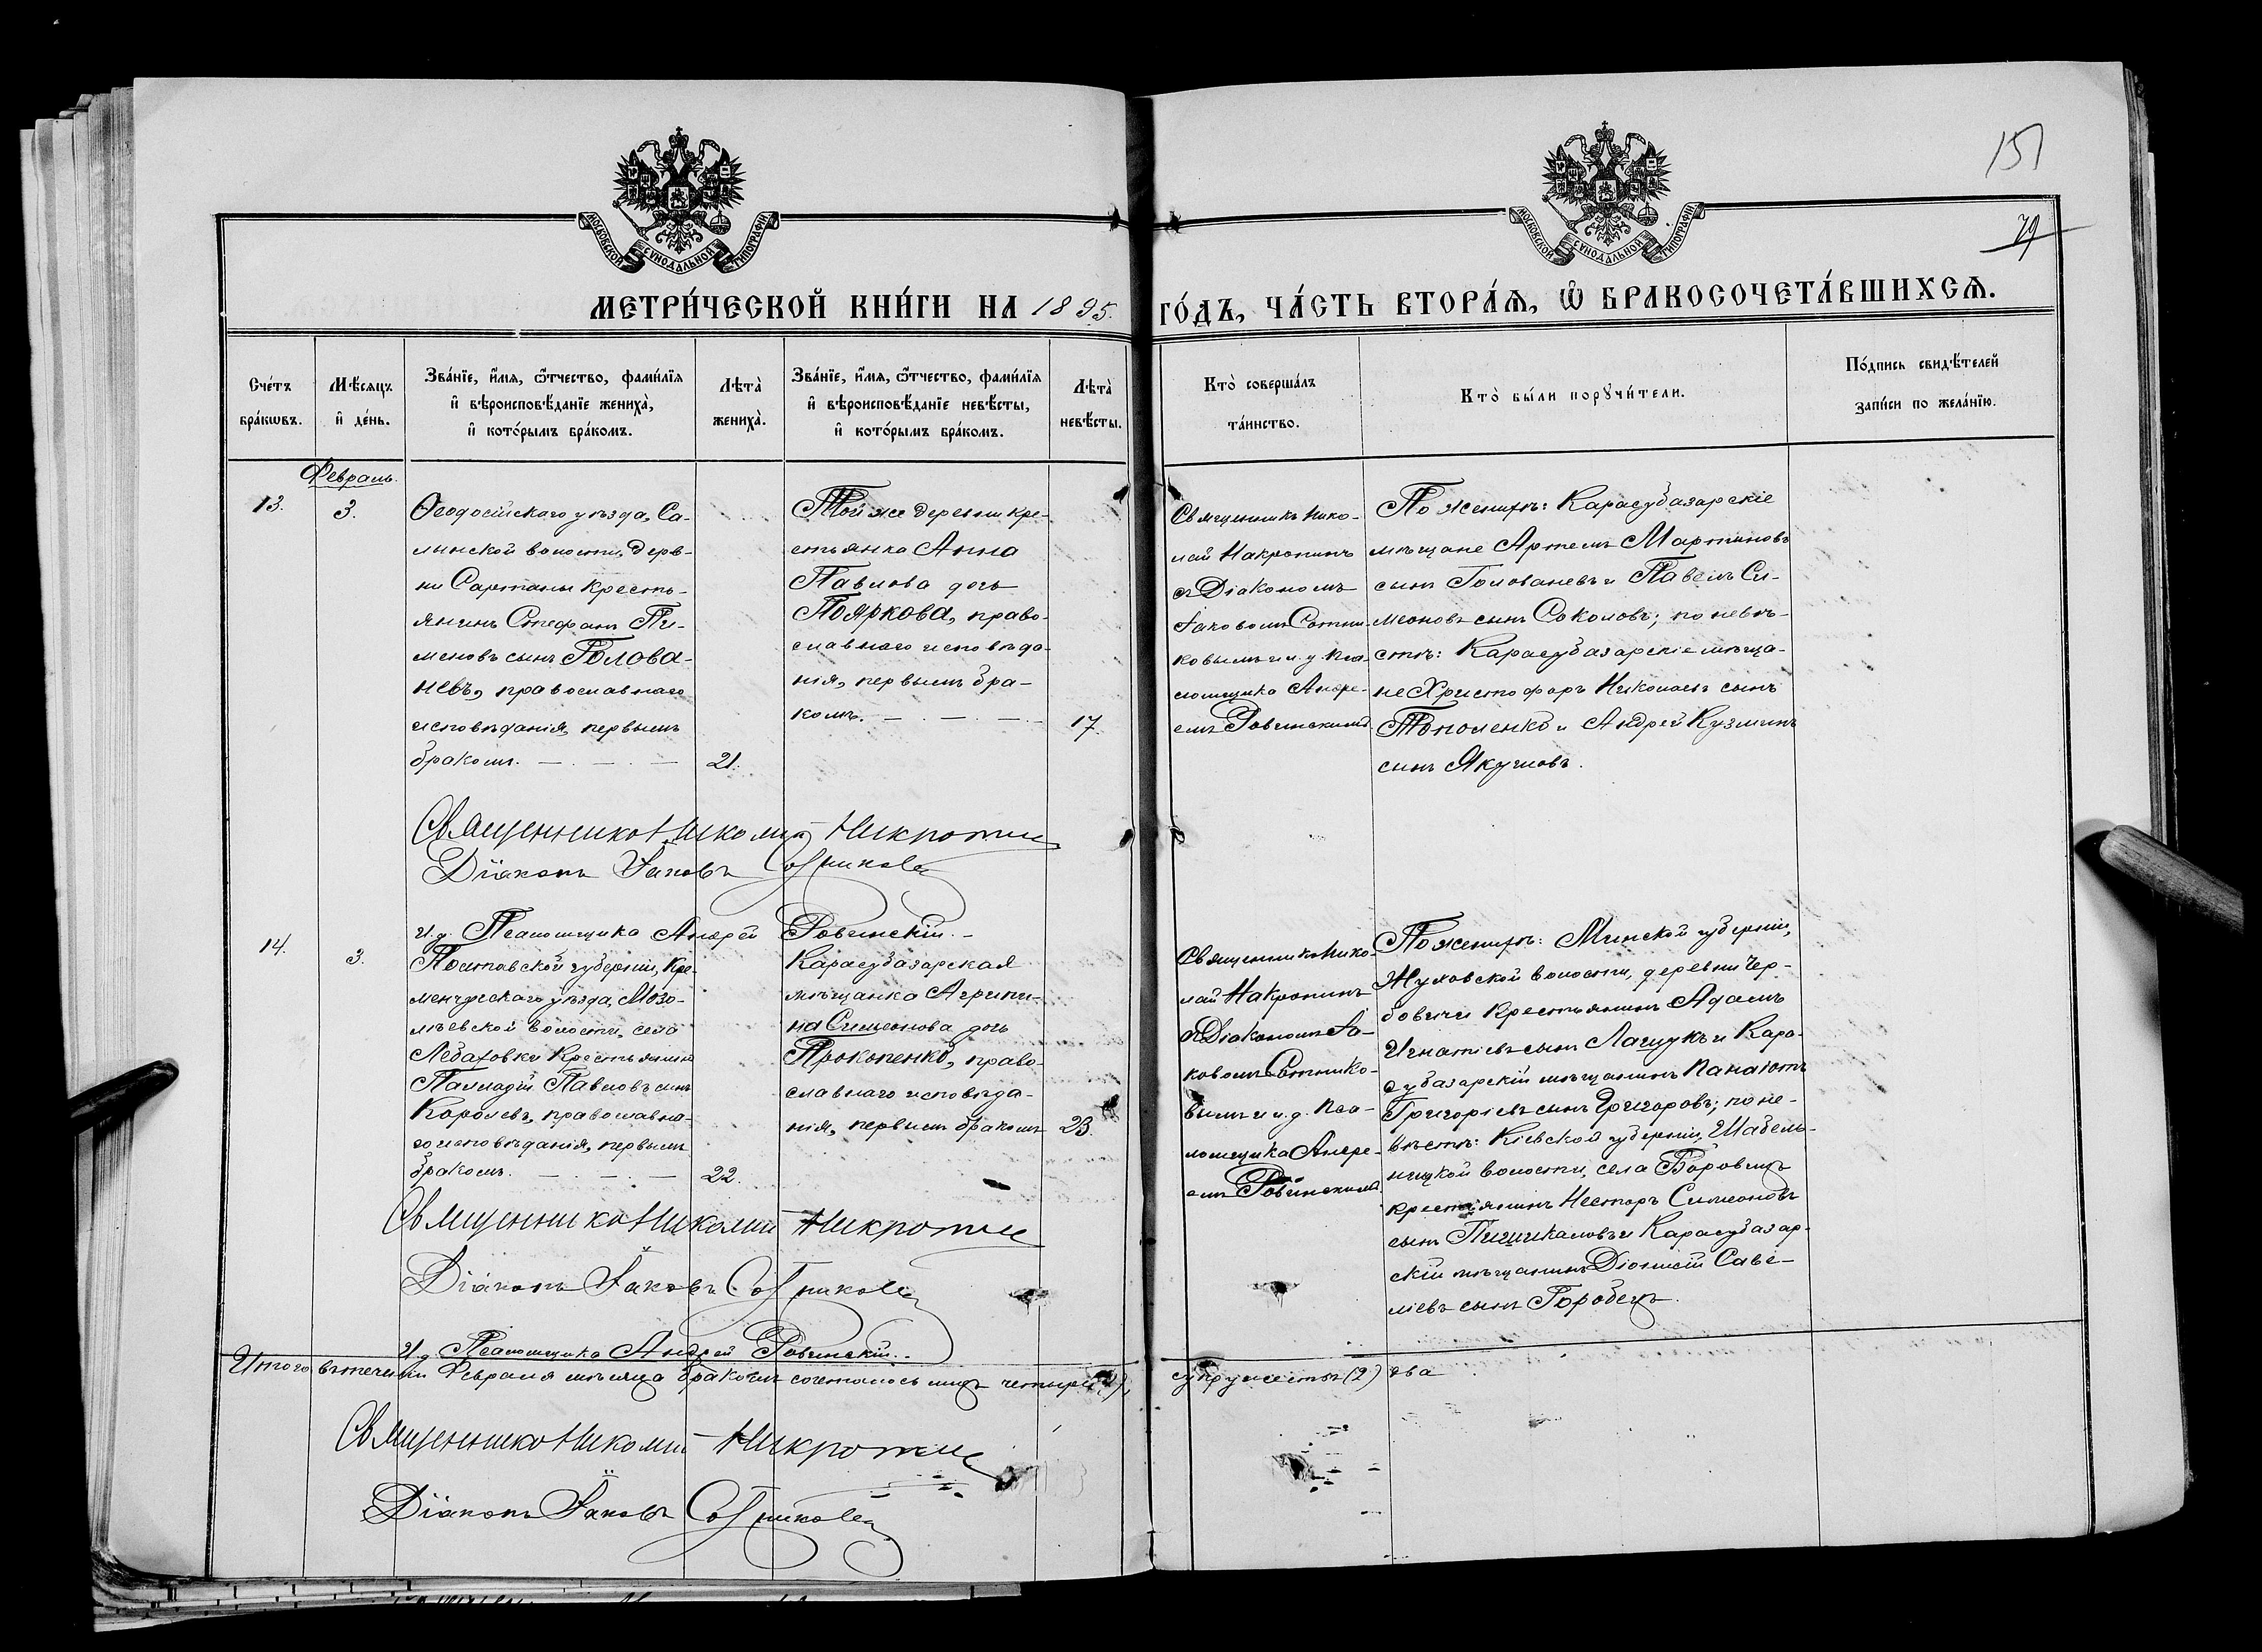 151
79
МОСКОВСКОЙ СѴНОДАЛЬНОЙ ТИПОГРАФІИ
МОСКОВСКОЙ СѴНОДАЛЬНОЙ ТИПОГРАФІИ
МЕТРИ́ЧЕСКОЙ КНИ́ГИ НА 1895. ГО́ДЪ, ЧА́СТЬ ВТОРА́Ѧ, Ѽ БРАКОСОЧЕТА́ВШИХСѦ.
Сче́тъ
бра́кѡвъ.
Мѣ́сяцъ
и҆ де́нь.
Зва́нїе, и҆́мя, ѻ҆́тчество, фами́лїя
и҆ вѣроисповѣ́данїе жениха̀,
и҆ кото́рымъ бра́комъ.
Лѣта̀
жениха̀.
Зва́нїе, и҆́мя, ѻ҆́тчество, фами́лїя
и҆ вѣроисповѣ́данїе невѣ́сты,
и҆ кото́рымъ бра́комъ.
Лѣта̀
невѣ́сты.
Кто̀ соверша́лъ
та́инство.
Кто̀ бы́ли порꙋчи́тели.
По́дпись свидѣ́телей
за́писи по жела́нїю.
Февраль.
13.
3.
Ѳеодосійскаго уѣзда, Са-
лынской волости, дерев-
ни Сартаны кресть-
янинъ Стефанъ Пи-
меновъ сынъ Голова-
невъ, православнаго
исповѣданія, первымъ
бракомъ.
21.
Той же деревни кре-
стьянка Анна
Павлова дочь
Пояркова, право-
славнаго исповѣда-
нія, первымъ бра-
комъ.
17.
Священникъ Нико-
лай Накропинъ
съ Діакономъ
Іаковомъ Сотни-
ковымъ и и. д. Пса-
ломщика Андре-
емъ Ровинскимъ
По женихѣ: Карасубазарскіе
мѣщане Артемъ Мартиновъ
сынъ Голованевъ и Павелъ Си-
меоновъ сынъ Соколовъ; по невѣ-
стѣ: Карасубазарскіе мѣща-
не Христофоръ Николаевъ сынъ
Тополенко и Андрей Кузминъ
сынъ Якушовъ.
Священникъ Николай
Діаконъ Іаковъ Сотниковъ
И. д. Псаломщика Андрей Ровинскій.
14.
3.
Полтавской губерніи, Кре-
менчугскаго уѣзда,
волости, села
крестьянинъ
Палладій Павловъ сынъ
Королевъ, православна-
го исповѣданія, первымъ
бракомъ.
22.
Карасубазарская
мѣщанка Агрипи-
на Симеонова дочь
Прокопенко, право-
славнаго исповѣда-
нія, первымъ бракомъ
23.
Священникъ Нико-
лай Накропинъ
съ Діакономъ Іа-
ковомъ Сотнико-
вымъ и и. д. Пса-
ломщика Андре-
емъ Ровинскимъ
По женихѣ: Минской губерніи,
Жуховской волости, деревни Чер-
бовичи крестьянинъ Адамъ
Игнатіевъ сынъ Лащукъ и Кара-
субазарскій мѣщанинъ Панаіотъ
Григоріевъ сынъ Григоровъ; по не-
вѣстѣ: Кіевской губерніи, Шабель-
ницкой волости, села Боровицъ
крестьянинъ Несторъ Симеоновъ
сынъ и Карасубазар-
скій мѣщанинъ Діонисій Саве-
ліевъ сынъ Горобецъ.
Священникъ Николай
Діаконъ Іаковъ Сотниковъ
И. д. Псаломщика Андрей Ровинскій.
Итого въ теченіи Февраля мѣсяца бракомъ сочеталось лицъ четыре (4), супружествъ (2) два
Священникъ Николай
Діаконъ Іаковъ Сотниковъ